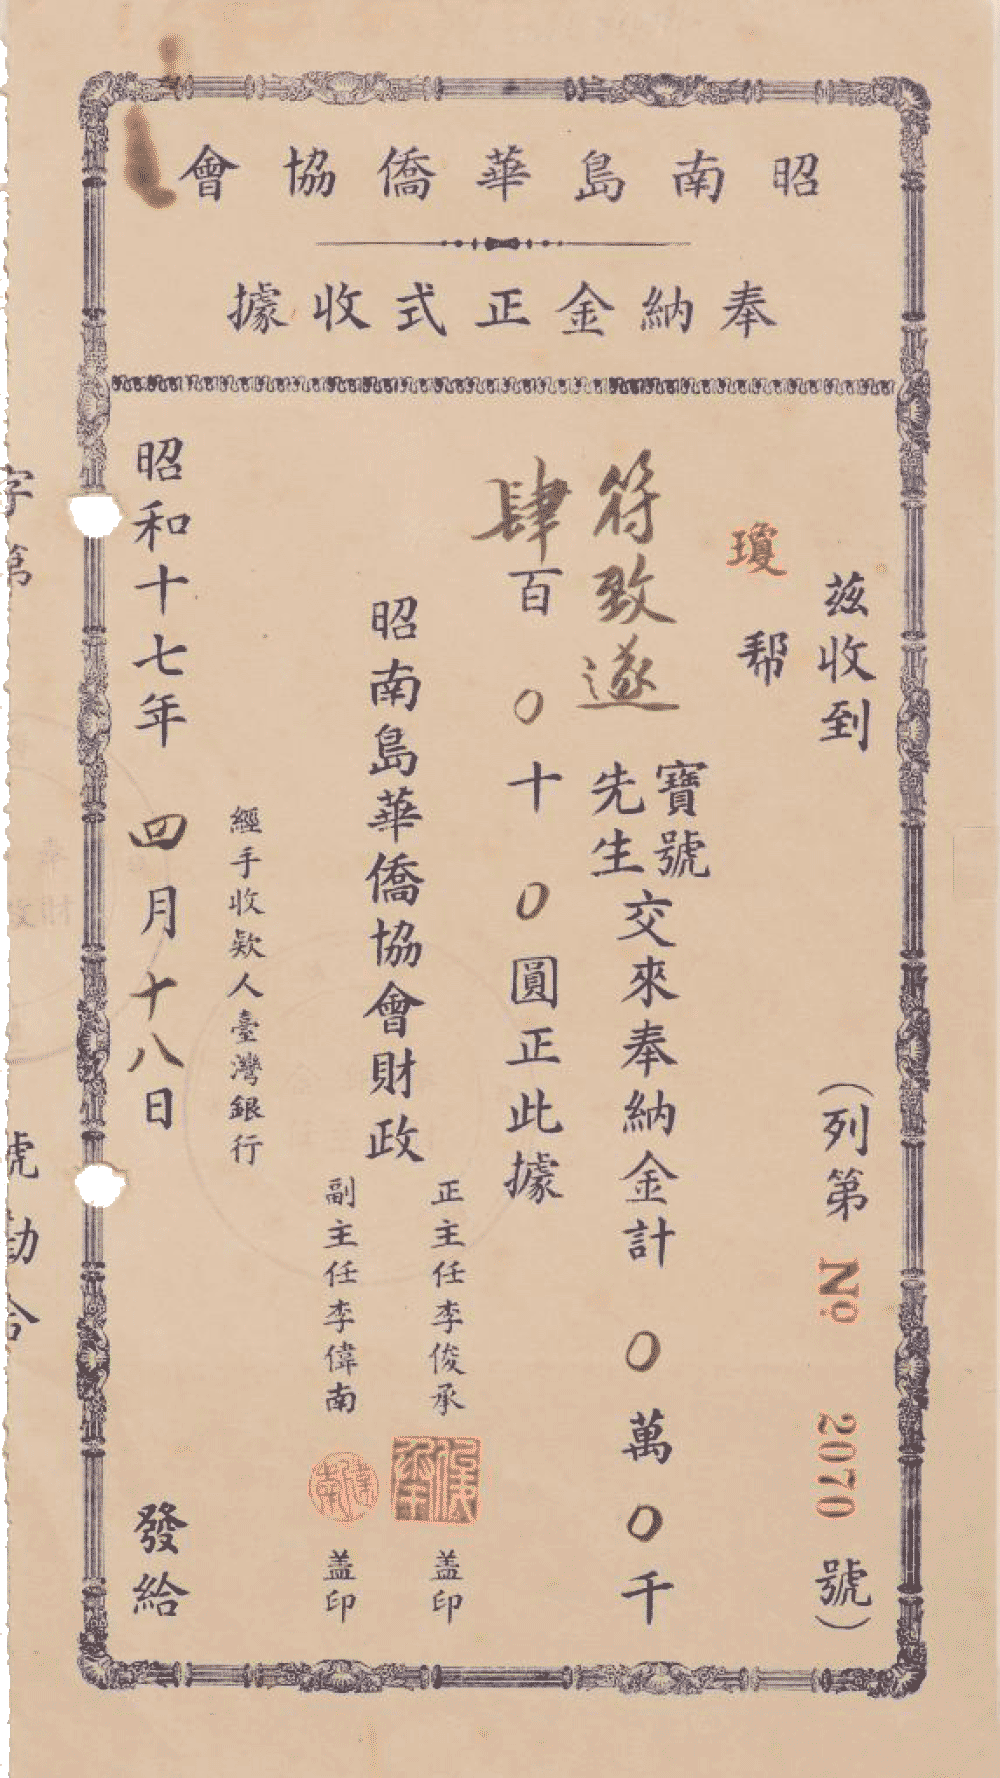 昭南島華僑協會
奉納金正式收據
茲收到
(列第 № 2070 號)
瓊 幫
符致遂 寶號 先生 交來奉納金計 0萬0千
肆百0十0圓正此據
昭南島華僑協會財政
正主任李俊承 蓋印
副主任李偉南 蓋印
經手收款人臺灣銀行
昭和十七年 四月十八日 發給
字第
號勘合